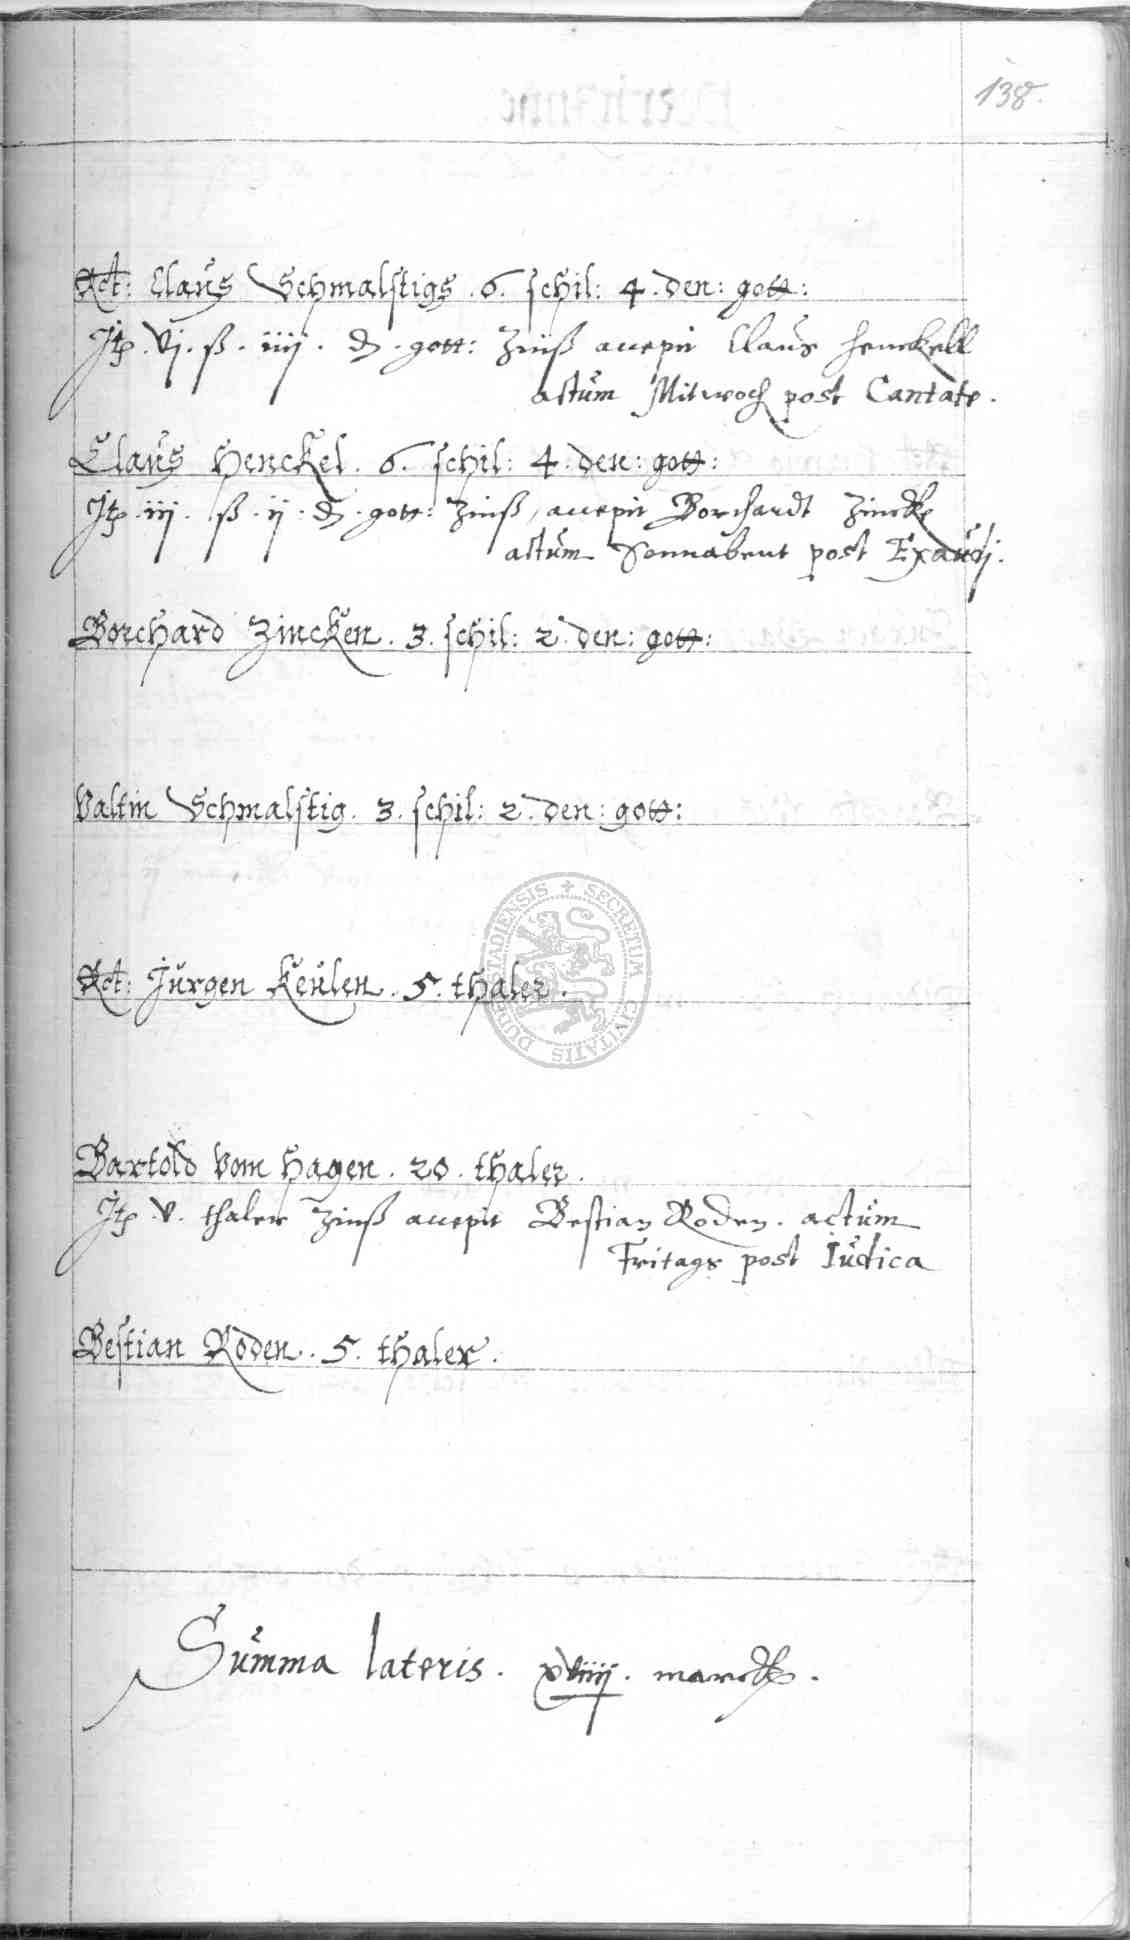 138.
Rct: Claus Schmalstigs . 6 . schil: 4 . den: gott:
Itp . vj . ß . iiij . d . gott: Zinß accepit Claus Henckell
actum Mitwoch post Cantate .
Claus Henckel . 6 . schil: 4 . den: gott:
Itp . iij . ß . ij . d . gott: Zinß, accepit Borchardt Zincke
actum Sonnabent post Exaudj .
Borchard Zincken . 3 . schil: 2 . den: gott:
Valtin Schmalstig . 3 . schil: 2 . den: gott:
Rct: Jurgen Keulen . 5 . thaler .
SECRETUM CIVITATIS DUDERSTADIENSIS
Bartold vom Hagen . 20 . thaler .
Itp . v . thaler Zinß accepit Bestian Roden . actum
Fritags post Iudica
Bestian Roden . 5 . thaler .
Summa lateris . xviiij . marck .